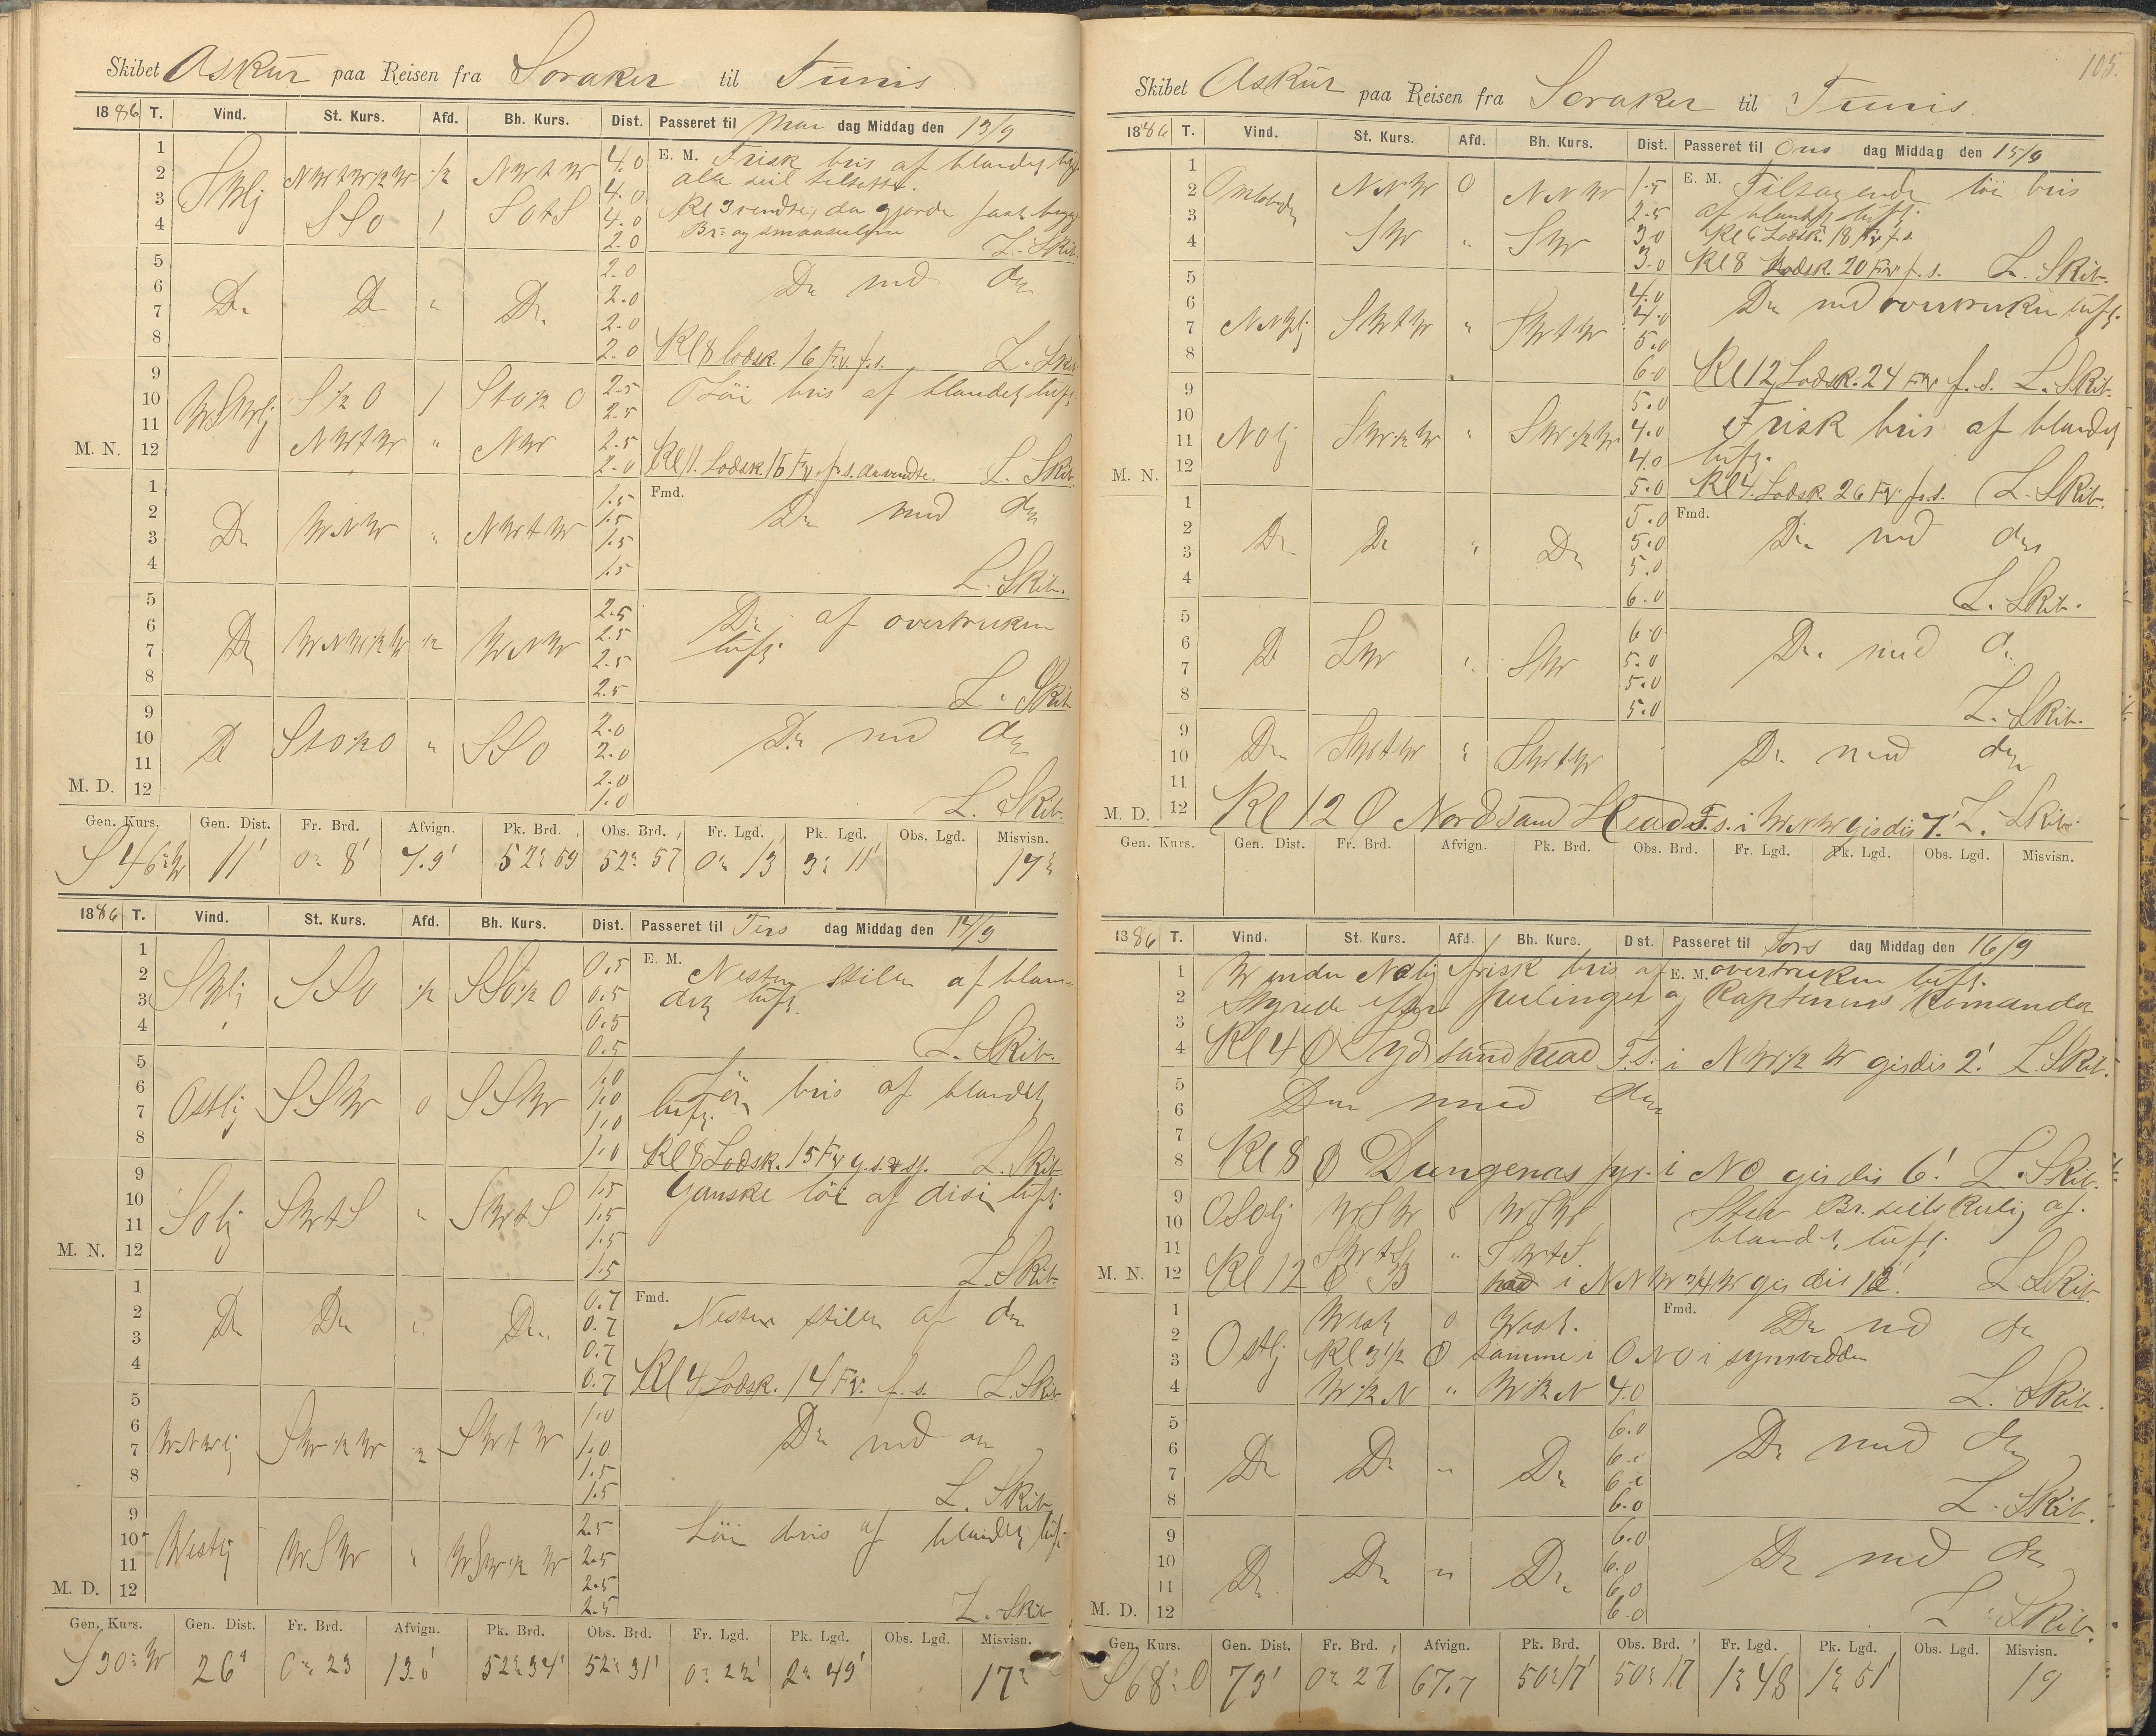 Skibet Askur paa Reisen fra Soraker til Tunis
1886 T. Vind. St. Kurs. Afd. Bh. Kurs. Dist. Passeret til Man dag Middag den 13/9
1 4.0 E. M. Frisk bris af blandet luft
2 SWlj NWtW½W ½ NWtW 4.0 alle seil tilsatte.
3 SSO 1 SOtS 4.0 Kl 3 vendte, da gjorde fast
4 2.0 Br: og smaaseilene L. Skib.
5 2.0
6 Do Do " Do. 2.0 Do med do
7 2.0
8 2.0 Kl 8 lodsk. 16 Fv. f.s. L. Skib
9 2.5 Löi bris af blandet luft
10 WSWlj S½O 1 StO½O 2.5
11 NWtW " NW 2.5
M. N. 12 2.0 Kl 11. Lodsk. 16 Fv. f. s. da vendte. L. Skib.
1 1.5 Fmd.
2 Do WNW " NWtW 1.5 Do med do
3 1.5
4 1.5 L. Skib.
5 2.5 Do af overtrukken
6 Do WNW½W ½ WNW 2.5 luft.
7 2.5
8 2.5 L. Skib.
9 2.0
10 Do StO½O " SSO 2.0 Do med do
11 2.0
M. D. 12 1.0 L. Skib.
Gen. Kurs. Gen. Dist. Fr. Brd. Afvign. Pk. Brd. Obs. Brd. Fr. Lgd. Pk. Lgd. Obs. Lgd. Misvisn.
S 46° W 11' 0° 8' 7.9' 52° 59 52° 57 0° 13 3° 11' 17°
1886 T. Vind. St. Kurs. Afd. Bh. Kurs. Dist. Passeret til Tirs dag Middag den 14/9
1 0.5 E. M.
2 SWlj SSO ½ SSO½O 0.5 Nesten stille af blan-
3 0.5 det luft.
4 0.5 L. Skib.
5 1.0 Löi bris af blandet
6 Ostlj SSW 0 SSW 1.0 luft.
7 1.0
8 1.0 Kl 8 Lodsk. 15 Fv g.s. L. Skib
9 1.5 Ganske löi af disi luft.
10 SOlj SWtS " SWtS 1.5
11 1.5
M. N. 12 1.5 L. Skib
1 0.7 Fmd.
2 Do Do " Do. 0.7 Nesten stille af do
3 0.7
4 0.7 Kl 4 Lodsk. 14 Fv. f. s. L. Skib
5 1.0
6 WNWlj SW½W ½ SWtW 1.0 Do med do
7 1.5
8 1.5 L. Skib
9 2.5 Löi bris af blandet luft.
10 Westlj WSW " WSW½W 2.5
11 2.5
M. D. 12 2.5 L. Skib
Gen. Kurs. Gen. Dist. Fr. Brd. Afvign. Pk. Brd. Obs. Brd. Fr. Lgd. Pk. Lgd. Obs. Lgd. Misvisn.
S 30° W 26' 0° 23 13.0' 52° 34' 52° 31' 0° 22' 2° 49' 17°
105.
Skibet Askur paa Reisen fra Soraker til Tunis.
1886 T. Vind. St. Kurs. Afd. Bh. Kurs. Dist. Passeret til Ons dag Middag den 15/9
1 1.5 E. M. Tiltagende löi bris
2 Omlobende NNW 0 NNW 2.5 af blandet luft.
3 3.0 Kl 6 Lodsk. 18 Fv. f. s.
4 SW " SW 3.0 Kl 8 Lodsk. 20 Fv. f. s. L. Skib.
5 4.0 Do med overtrukken luft.
6 NNWlj SWtW " SWtW 4.0
7 5.0
8 6.0 Kl 12 Lodsk. 24 Fv. f. s. L. Skib.
9 5.0
10 NOlj SW½W " SW½W 4.0 Frisk bris af blandet
11 4.0 luft.
M. N. 12 5.0 Kl 4. Lodsk. 26 Fv. f. s. L. Skib.
1 5.0 Fmd.
2 Do Do " Do 5.0 Do med do
3 5.0
4 6.0 L. Skib.
5 6.0
6 Do SW " SW 5.0 Do. med do
7 5.0
8 5.0 L. Skib.
9
10 Do SWtW " SWtW Do med do
11
M. D. 12 Kl 12 O Nord Sand Head F.s. i WNW gisdis 7.' L. Skib.
Gen. Kurs. Gen. Dist. Fr. Brd. Afvign. Pk. Brd. Obs. Brd. Fr. Lgd. Pk. Lgd. Obs. Lgd. Misvisn.
1886 T. Vind. St. Kurs. Afd. Bh. Kurs. Dist. Passeret til Tors dag Middag den 16/9
1 Vinden NOlig frisk bris af E. M. overtrukken luft.
2 Styrede efter peilinger og Kaptenens Komando
3
4 Kl 4 O Syd sand head F.s. i NW½W gisdis 2.' L. Skib.
5 Do med do
6
7
8 Kl 8 O Dungenas fyr. i NO gisdis 6.' L. Skib.
9 OSOlj WSW 0 WSW Stiv Br. seils Kulig af
10 blandet luft.
11 SWtS " SWtS
M. N. 12 Kl 12 O B head i NNW¾W gisdis L. Skib
1 West 0 West. Fmd. Do med do
2 Ostlj
3 Kl 3½ O samme i ONO i synsvidden
4 W½N " W½N 4.0 L. Skib.
5 6.0
6 Do Do " Do 6.0 Do med do
7 6.0
8 6.0 L. Skib.
9 6.0
10 Do Do " Do 6.0 Do med do
11 6.0
M. D. 12 6.0 L. Skib.
Gen. Kurs. Gen. Dist. Fr. Brd. Afvign. Pk. Brd. Obs. Brd. Fr. Lgd. Pk. Lgd. Obs. Lgd. Misvisn.
S 68° O 73' 0° 27 67.7 50° 17' 50° 17 1° 48 1° 51' 19